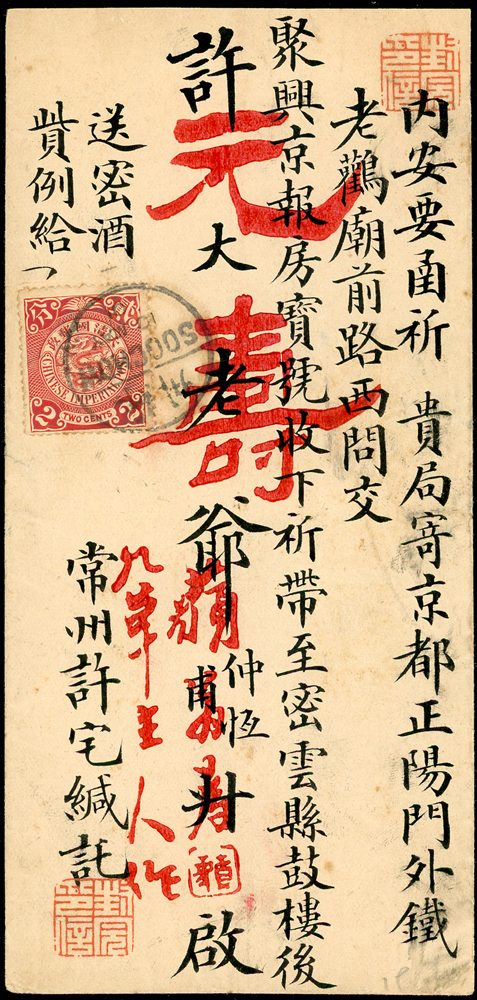 內安要函祈　貴局寄京都正陽門外鐵
老鸛廟前路西問交
聚興京報房寶號收下祈帶至密雲縣鼓樓後
許大老爺
仲恆
甫
升啟
送密酒
貲例給
常州許宅緘託
元壽
主人作
CHINESE IMPERIAL POST
2
2
TWO CENTS
SOOCHOW